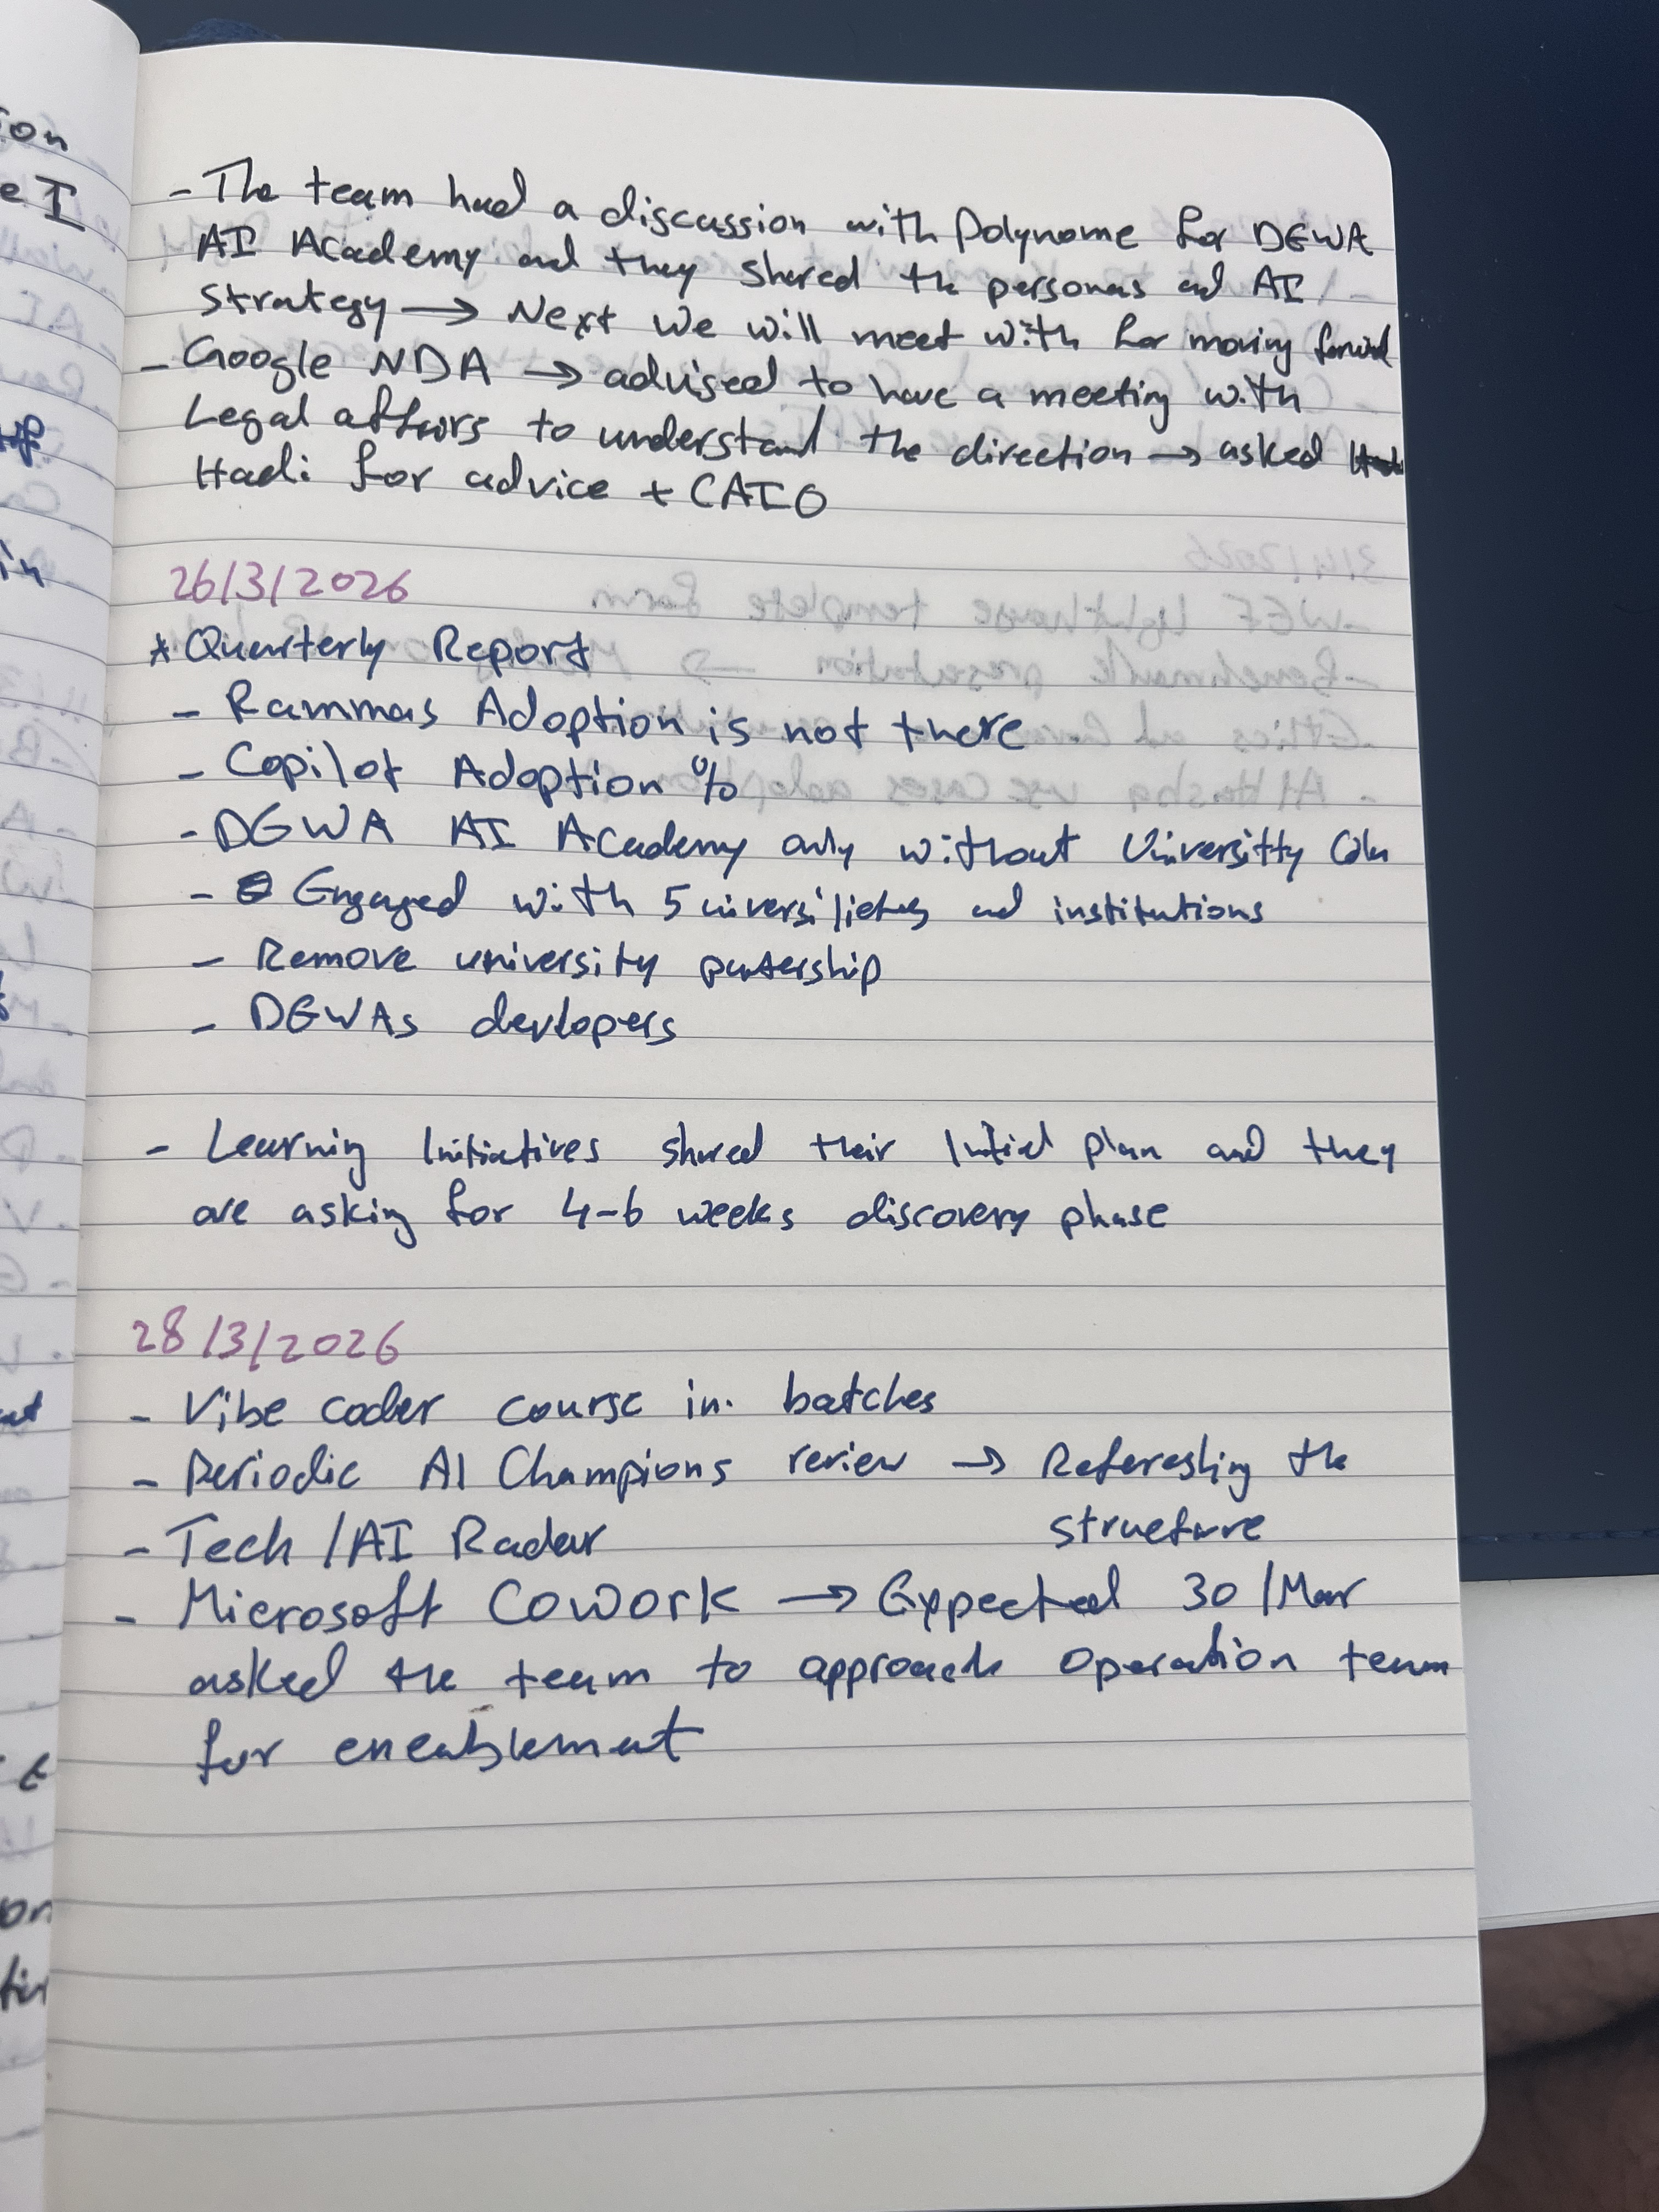 - The team had a discussion with Polynome for DEWA
AI Academy and they shared the personas and AI
strategy → Next we will meet with for moving forward
- Google NDA → advised to have a meeting with
Legal affairs to understand the direction → asked
Hadi for advice + CAIO
26/3/2026
* Quarterly Report
- Rammas Adoption is not there
- Copilot Adoption %
- DEWA AI Academy only without Universitty
- Engaged with 5 and institutions
- Remove university partership
- DEWAs devlopers
- Learning Initiatives shared their Initial plan and they
are asking for 4-6 weeks discovery phase
28/3/2026
- Vibe coder course in. batches
- Periodic AI Champions review → Refereshing the
structure
- Tech /AI Radar
- Microsoft Cowork → Expected 30/Mar
asked the team to approach operation team
for eneablement